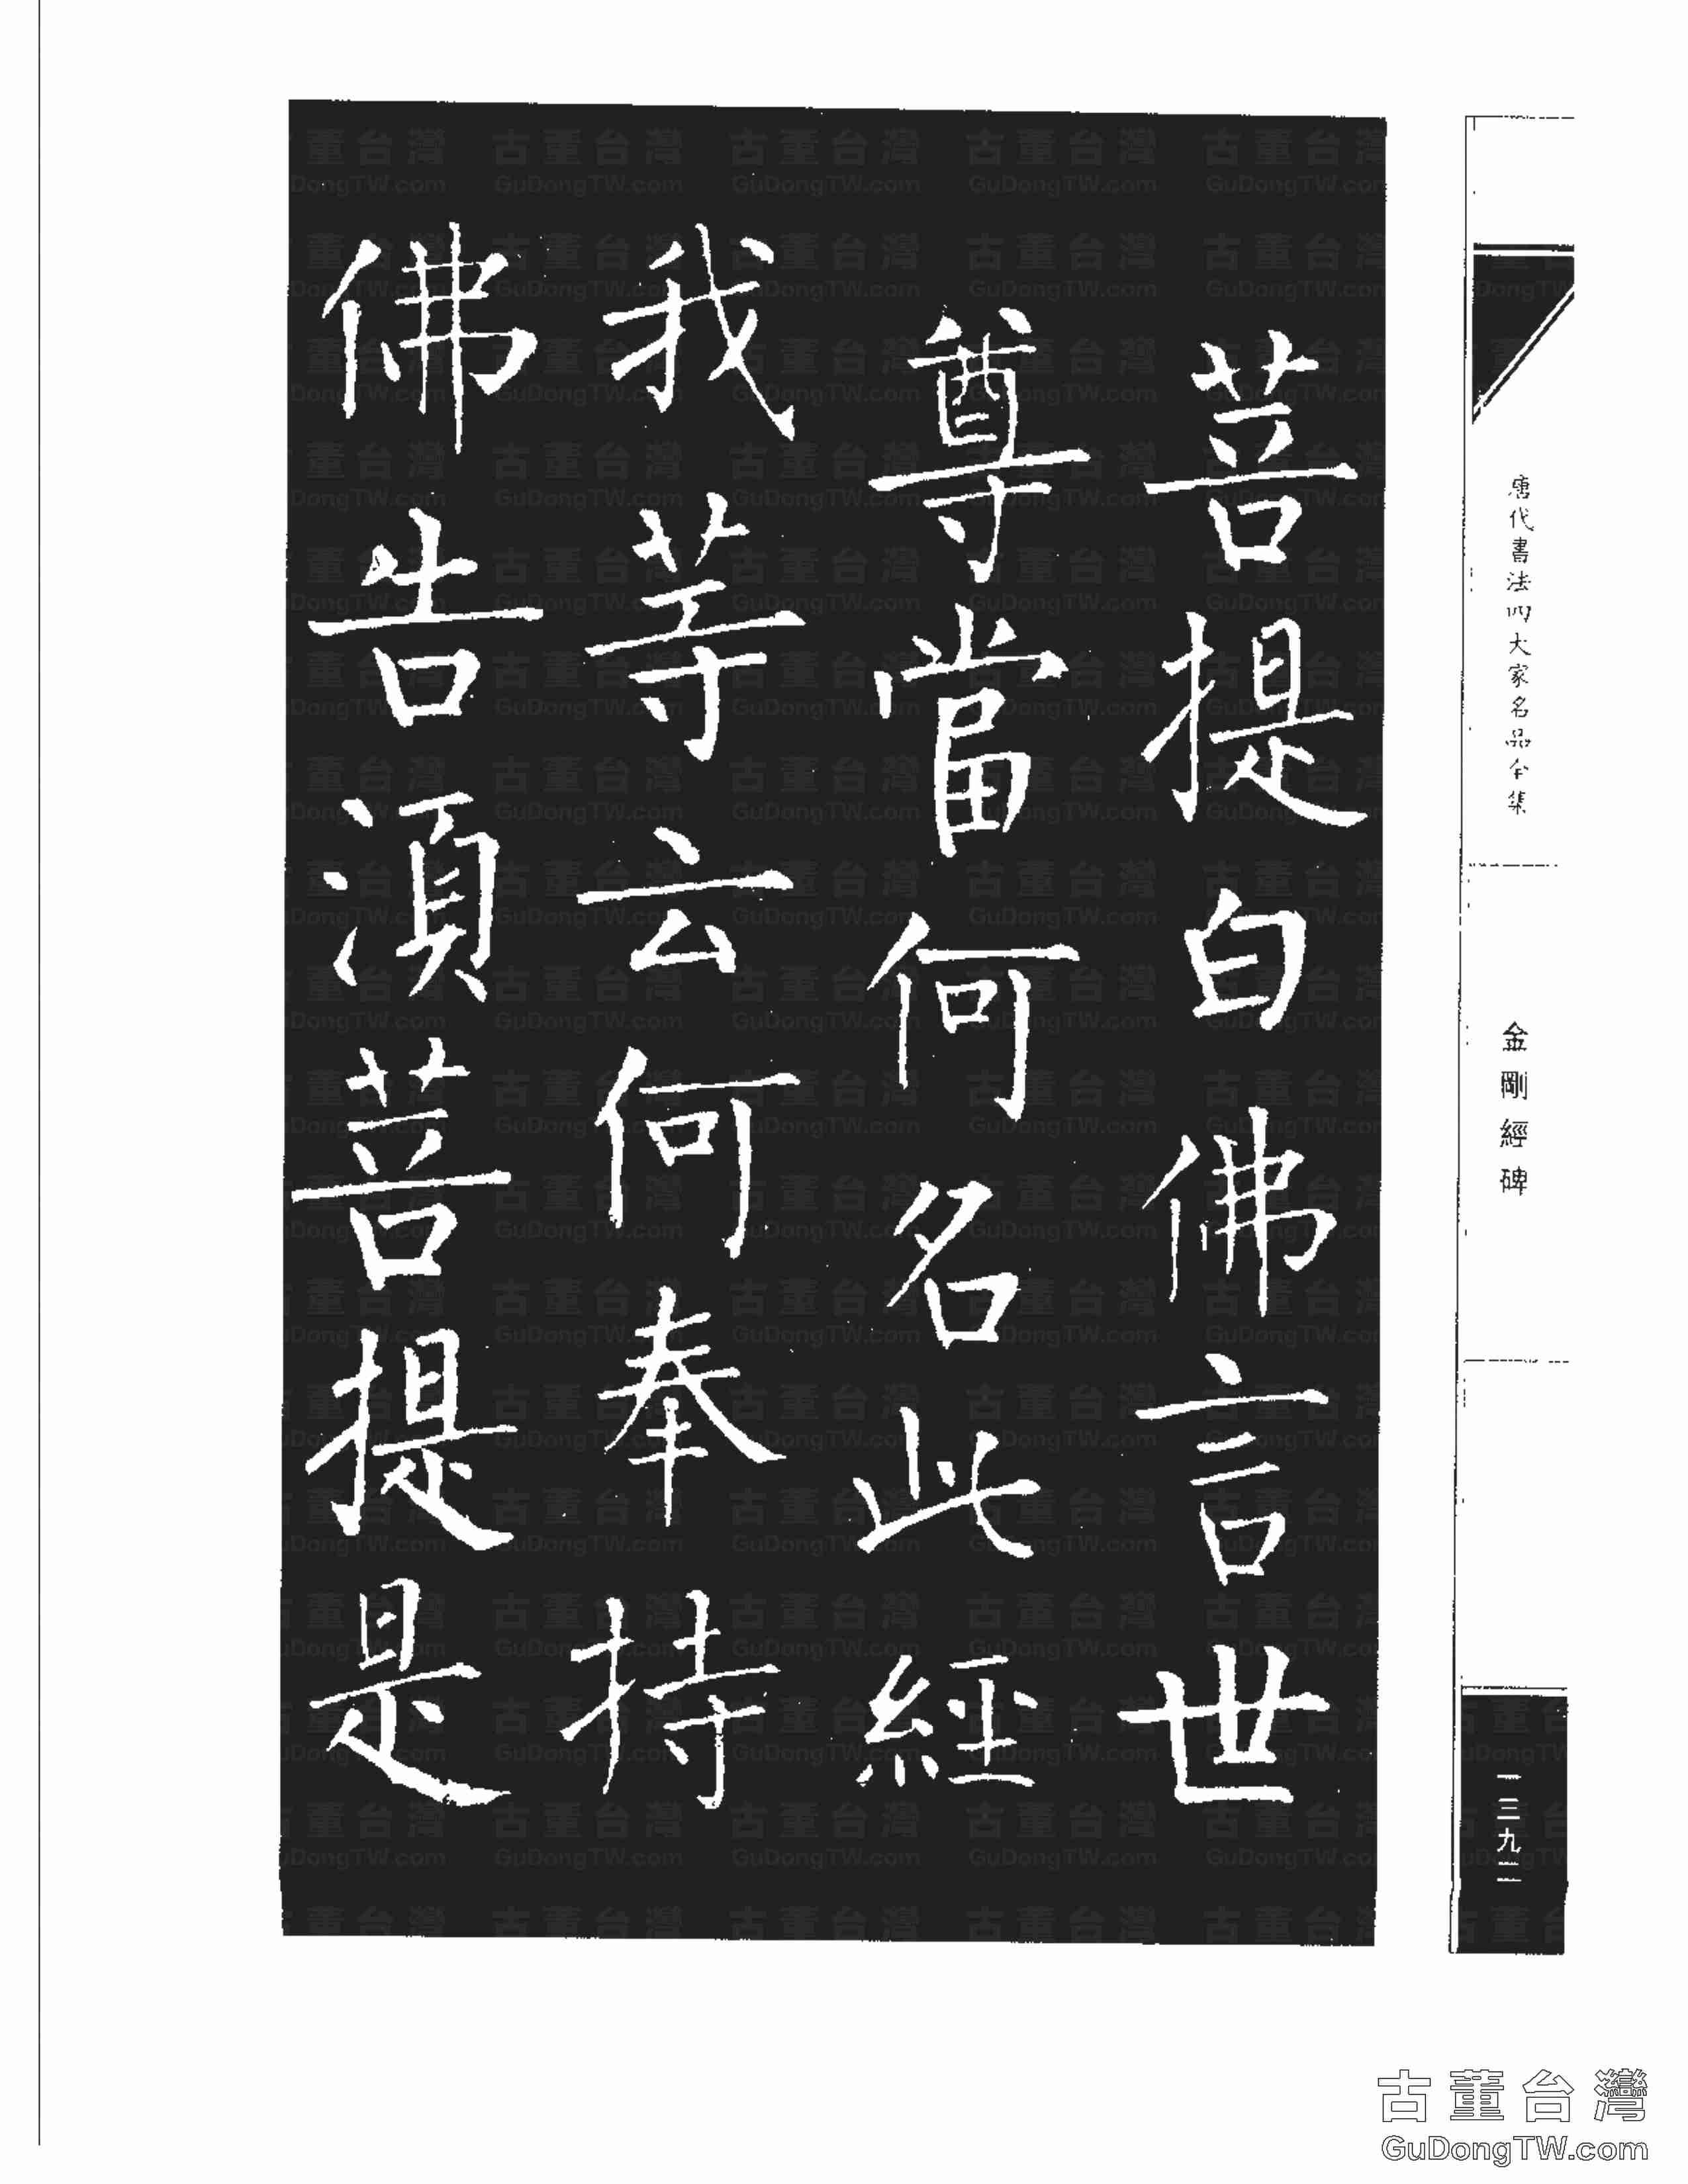 菩提白佛言世
尊當何名此經
我等云何奉持
佛告湏菩提是
唐代書法四大家名品全集
金剛經碑
一三九二
古董台灣
GuDongTW.com